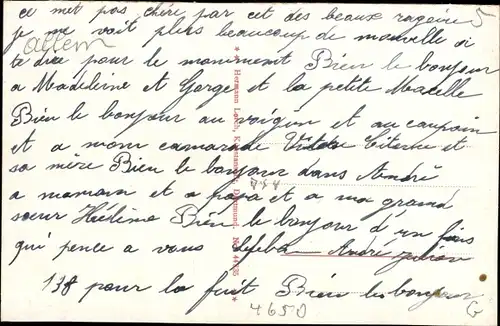 ce met pas chere par cet des beaux ragoire
je me voit plus beaucoup de nouvelle si
allem
te dire pour le moment Bien le bonjour
a Madeleine et Gorge et la petite Marelle
Bien le bonjour au voigin et au coupain
et a mom camarade Victor Citerne et
sa mère Bien le bonjour dans André
a maman et a papa et a ma grand
sœur Hélène Bien le bonjour d'un fois
qui pence a vous Lefeb André julien
138 pour la fuit Bien le bonjour
4650
G
* * * Hermann Lorch, Kunstanstalt, Dortmund. Nr. * * *